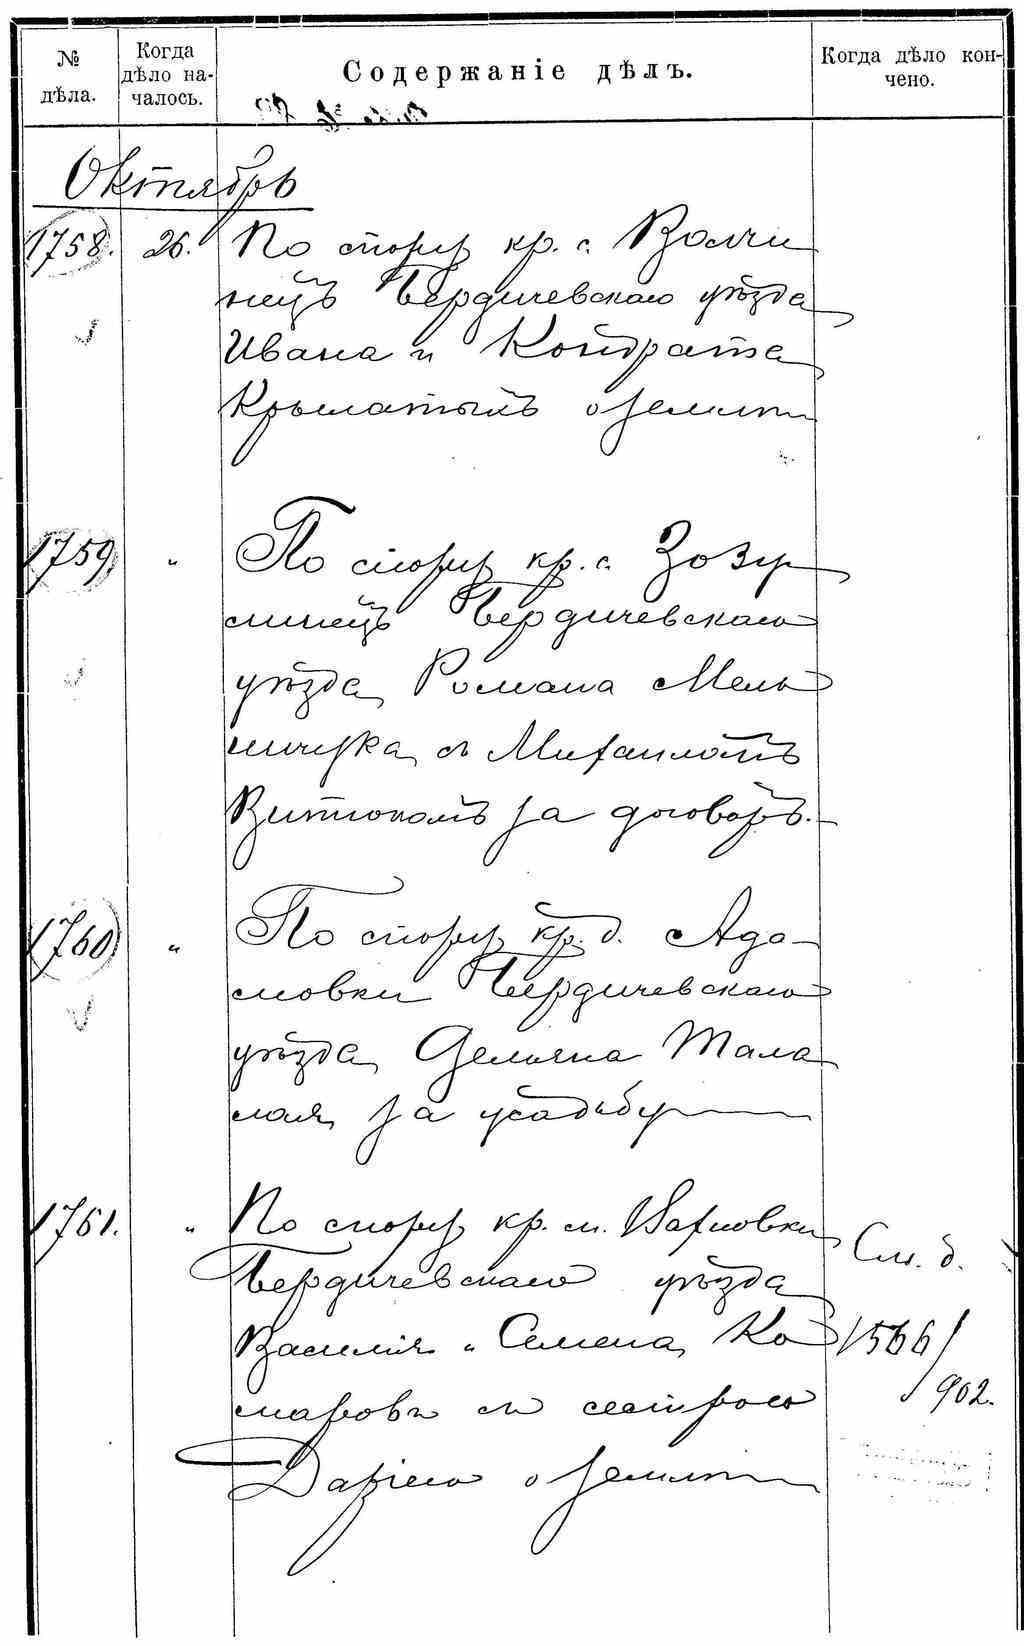 № дѣла.
Когда дѣло на-
чалось.
Содержаніе дѣлъ.
Когда дѣло кон-
чено.
Октябрь
1758. 26. По спору кр. с. Волчи
нецъ Бердичевскаго уѣзда
Ивана и Кондрата
Крылатыхъ о землѣ
1759 " По спору кр. с. Зозу
линецъ Бердичевскаго
уѣзда Романа Мель
ничука съ Михаиломъ
Витюкомъ за договоръ.
1760 " По спору кр. д. Ада-
мовки Бердичевскаго
уѣзда Демьяна Мала
мая за усадьбу
1761. " По спору кр. м. Махновки
Бердичевскаго уѣзда
Василія и Семена Ко
маровъ съ сестрою
Даріею о землѣ
См. д.
1566/
902.